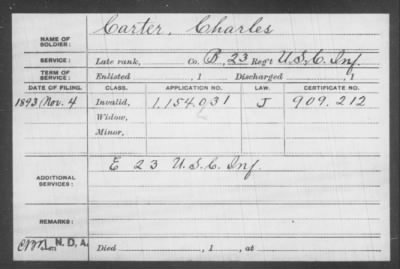 NAME OF SOLDIER: Carter, Charles
SERVICE: Late rank, Co. B, 23 Reg't U.S.C. Inf.
TERM OF SERVICE: Enlisted , 1 Discharged , 1
DATE OF FILING. CLASS. APPLICATION NO. LAW. CERTIFICATE NO.
1893 Nov. 4 Invalid, 1,154,031 J 909.212
Widow,
Minor,
ADDITIONAL SERVICES: E 23 U.S.C. Inf.
REMARKS:
N. D. A. Died , 1 , at